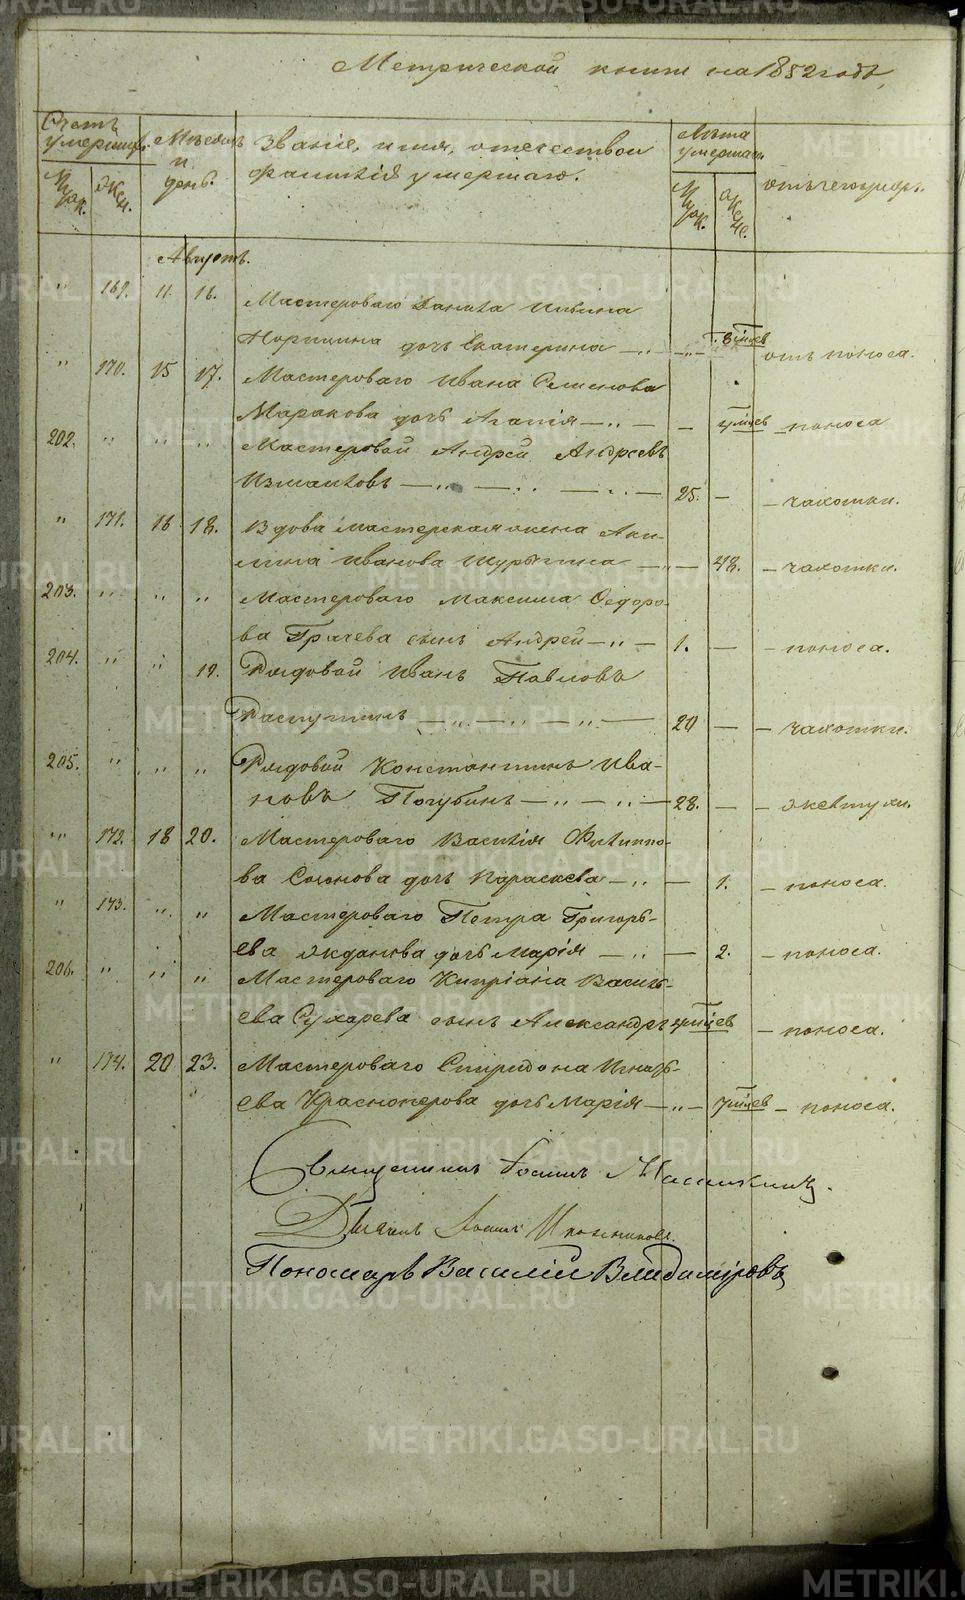 Метрической книги на 1852 годъ,
Счетъ умершихъ.
Мѣсяцъ и день.
Званіе, имя, отечество и фамилія умершаго.
Лѣта умершаго
отъ чего умеръ.
Муж. Жен.
Муж. Жен.
Августъ.
" 169. 11. 16. Мастероваго Данила Ильина
дочь Екатерина — " — 8 мцев отъ поноса.
" 170. 15 17. Мастероваго Ивана Семенова
Маракова дочь Агапія — " — — 4 мцев — поноса
202. " " " Мастеровой Андрей Андреевъ
Измаиловъ — " — " — " — 25. — — чахотки.
" 171. 16 18. Вдова мастерская жена Аки-
лина Иванова — " — 48. — чахотки.
203. " " " Мастероваго Максима Ѳедоро-
ва Грачева сынъ Андрей — " — 1. — — поноса.
204. " " 19. Рядовой Иванъ Павловъ
Распутинъ — " — " — " — 20 — — чахотки.
205. " " " Рядовой Константинъ Ива-
новъ Погубинъ — " — " — 28. — —
" 172. 18 20. Мастероваго Василія Филиппо-
ва дочь Параскева — " — 1. — поноса.
" 173. " " Мастероваго Петра Григорь-
ева Жданова дочь Марія — " — 2. — поноса.
206. " " " Мастероваго Кипріана Василь-
ева Сухарева сынъ Александръ мцев — поноса.
" 174. 20 23. Мастероваго Спиридона Игнать-
ева Красноперова дочь Марія — " — 7 мцев — поноса.
Священникъ Іоаннъ
Дьячекъ
Пономарь Василій Владиміровъ
METRIKI.GASO-URAL.RU